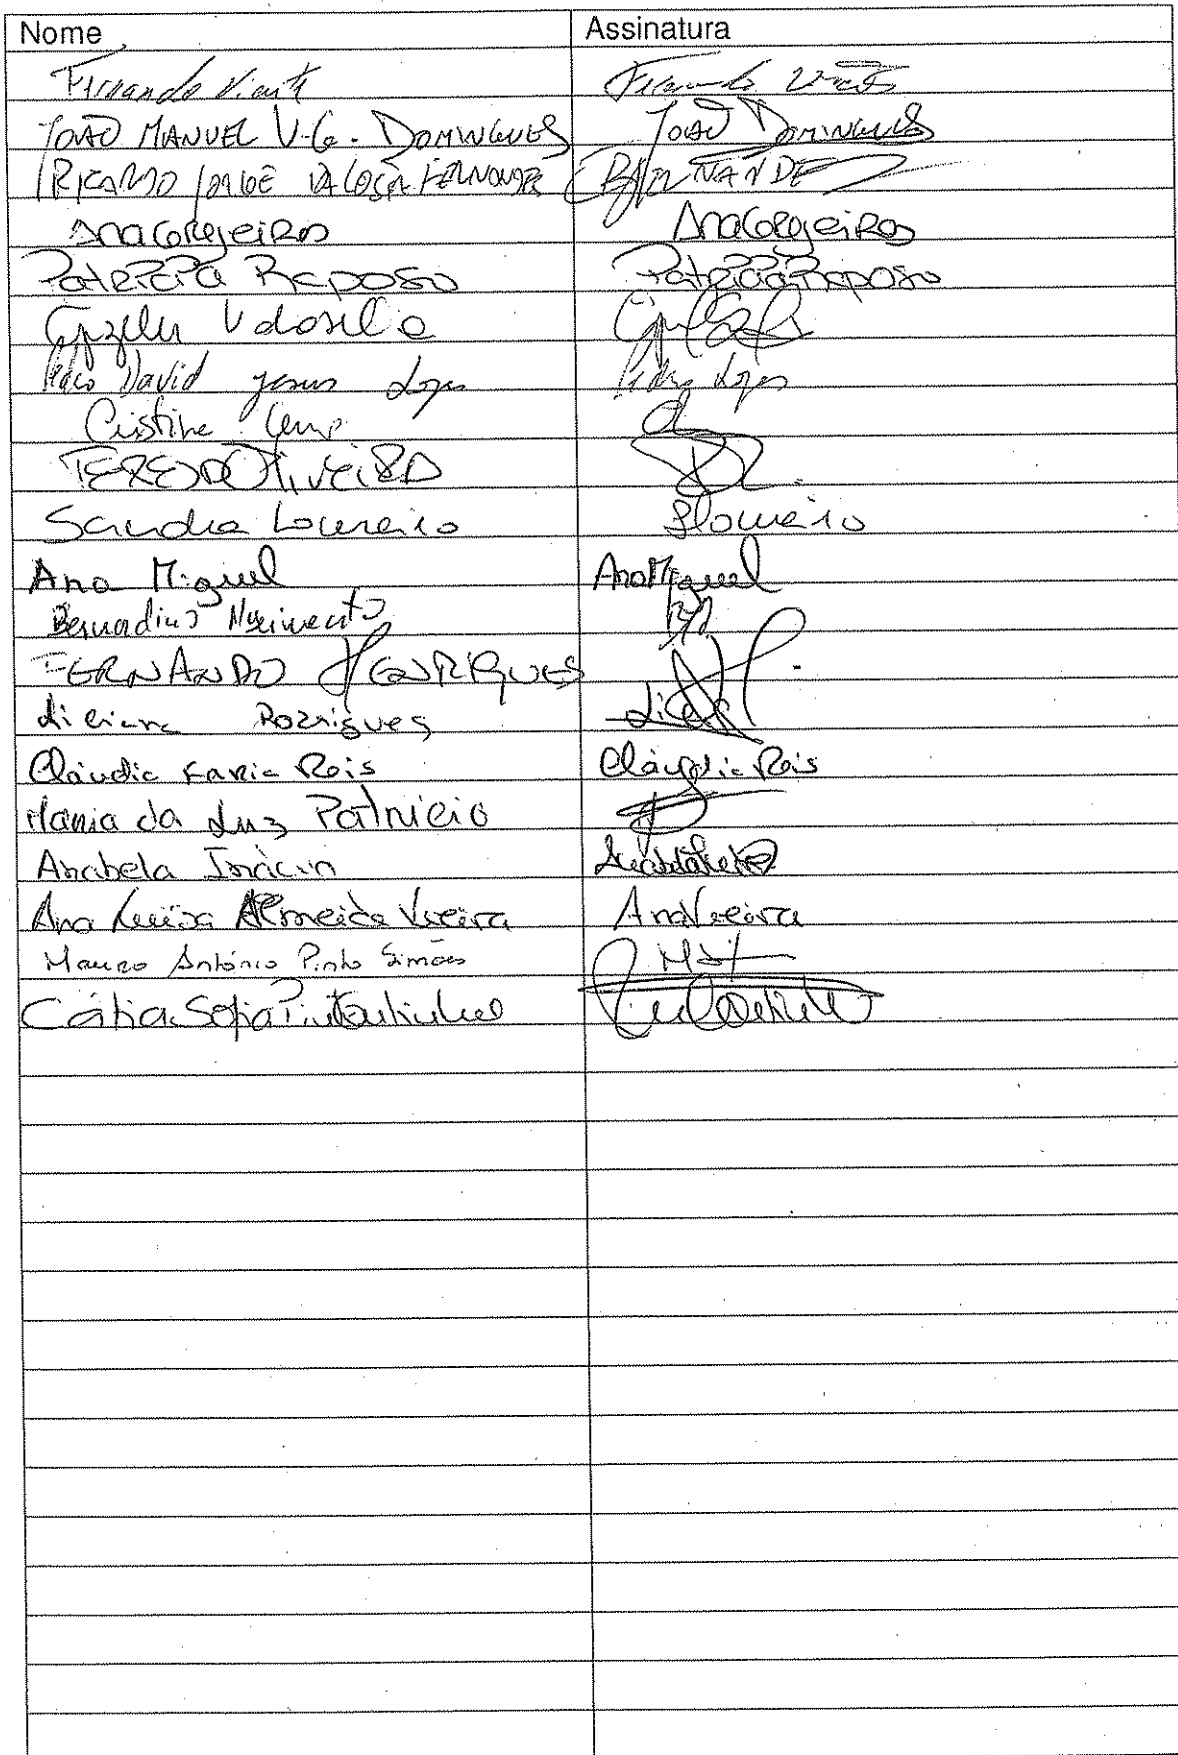 Nome Assinatura
Fernando Vicente Fernando Vicente
JOÃO MANUEL V.G. DOMINGUES JOÃO DOMINGUES
RICARDO JORGE FERNANDES FERNANDE
Ana Corgeiros Ana Corgeiros
Patrícia Raposo Patrícia Raposo
Pedro David Jesus Lopes Pedro Lopes
Cristina
OLiVEiRA
Sandra Loureiro SLoureiro
Ana Miguel Ana Miguel
Bernardino Nascimento
FERNANDO HENRIQUES
Liliana Rodrigues
Cláudia Faria Reis Cláudia Reis
Maria da Luz Patrício
Anabela Inácio
Ana Luísa Almeida Vieira Ana Vieira
Mauro António Pinto Simões
Cátia Sofia